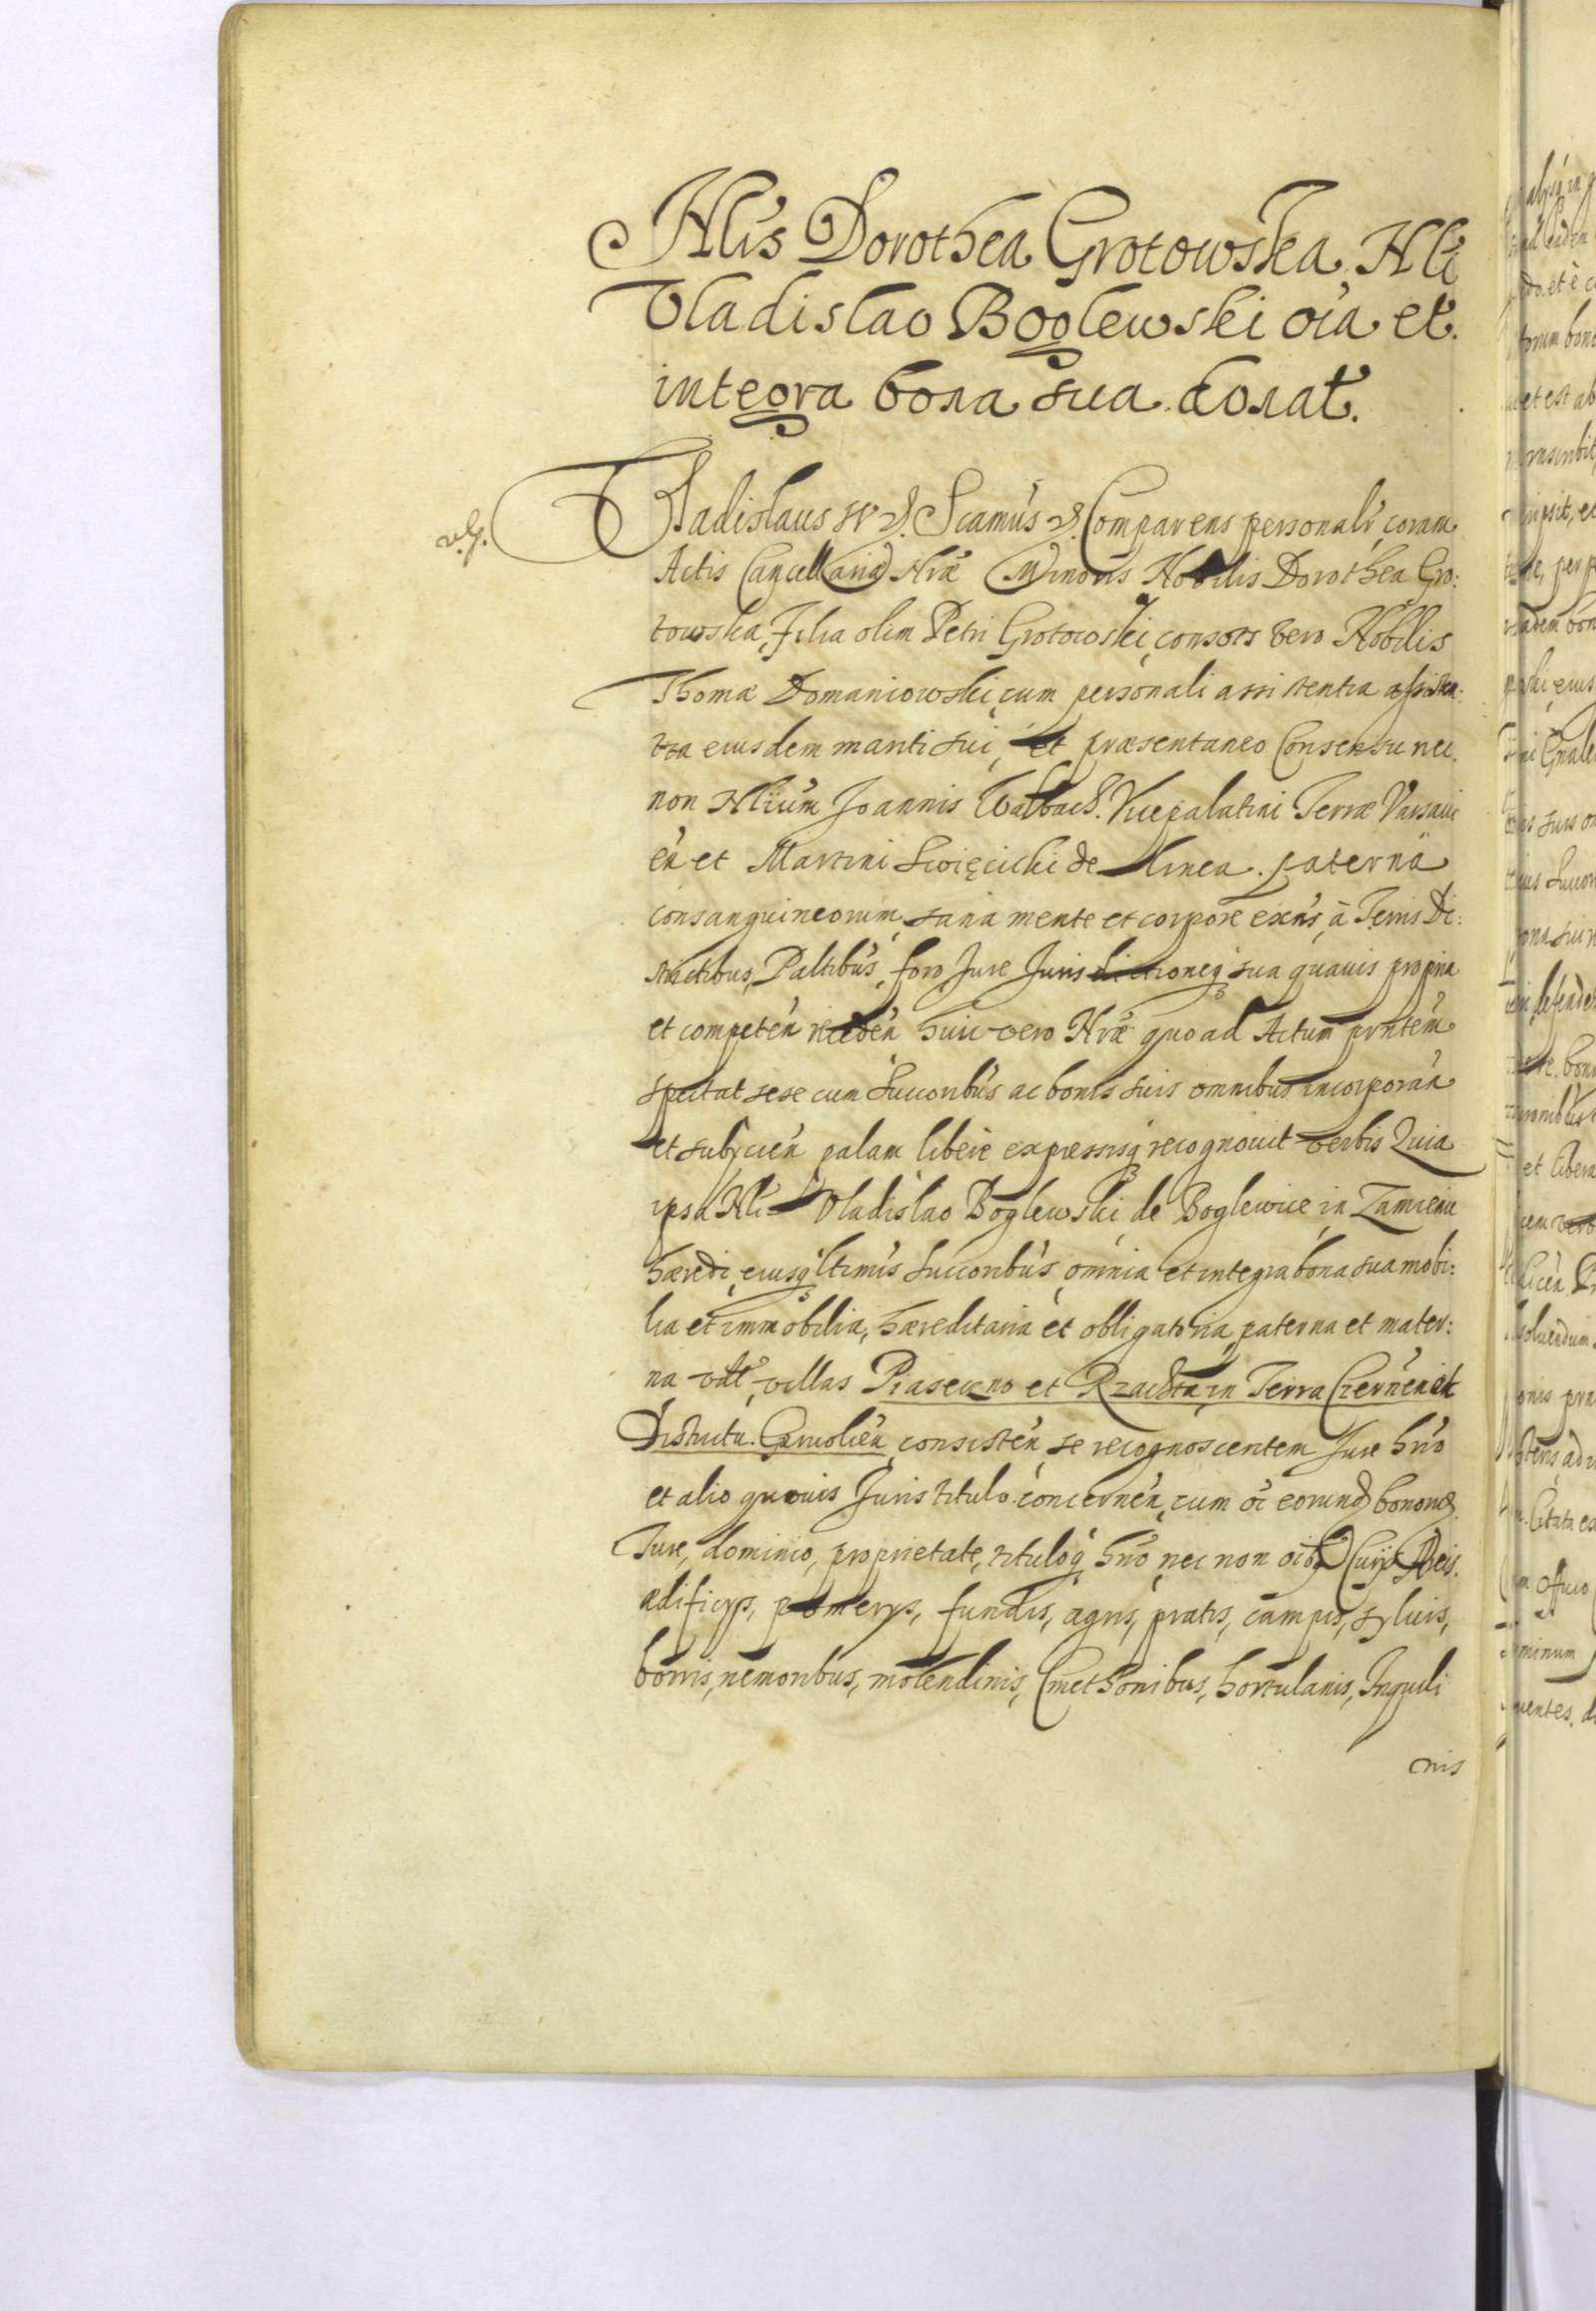 Nlis Dorothea Grotowska Nli
Vladislao Boglewski oia et
integra bona sua donat.
Vladislaus IV D. Scamus D. Comparens personalr coram
Actis Cancellariae Nrae Minoris Nobilis Dorothea Gro:
towska, Filia olim Petri Grotowski, consors vero Nobilis
Thomae Domaniowski, cum personali assistentia assisten:
tia eiusdem mariti sui, et praesentaneo Consensu nec
non Nlium Joannis Walbach. Vicepalatini Terrae Varsavi
en et Martini Swięcicki de linea paterna
consanguineorum, sana mente et corpore exens, à Terris Di:
strictibus, Paltibus, foro, Jure Jurisdictioneq sua quavis propria
et competen receden huic vero Nrae quo ad Actum prntem
spectat sese cum Succoribus ac bonis suis omnibus incorporan
et subijcien palam libere expressisq recognovit verbis Quia
ipsa Nli Vladislao Boglewski de Boglewice in Zamienie
haeredi, eiusq ltimis Succoribus, omnia et integra bona sua mobi:
lia et immobilia, haereditaria et obligatoria, paterna et mater:
na vdt, villas Piaseczno et Rzachta in Terra Czernen et
Districtu Garvolien consisten, se recognoscentem Jure hrio
et alio quovis Juris titulo concernen, cum oi eorund bonorum
Jure, dominio, proprietate, tituloq hrio, nec non oibus Curijs Areis.
aedificijs, pomerijs, fundis, agris, pratis, campis, syluis,
borris, nemoribus, molendinis, Cmethonibus, hortulanis, Inquili
nis